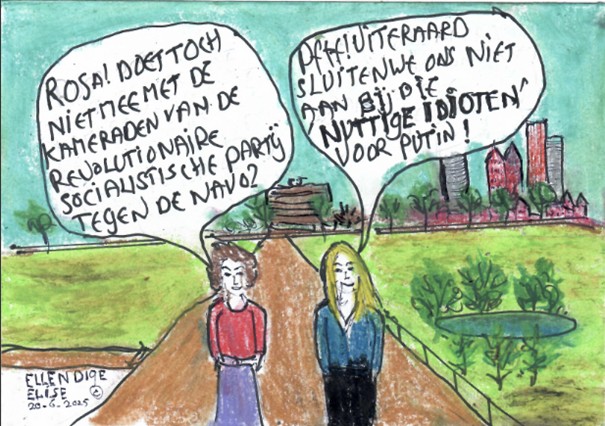 ROSA! DOET TOCH
NIET MEE MET DE
KAMERADEN VAN DE
REVOLUTIONAIRE
SOCIALISTISCHE PARTIJ
TEGEN DE NAVO?
PFFF! UITERAARD
SLUITEN WE ONS NIET
AAN BIJ DIE
'NUTTIGE IDIOTEN'
VOOR PUTIN!
ELLENDIGE
ELISE ©
20-6-2025